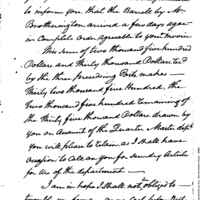 to inform you, that the Barrels by Mr
Brotherington arrived a few days agoe
in Complete Order agreable to your Invoice
This Sum of two thousand five hundred
Dollars and thirty thousand Dollars by
the three preceeding Posts makes
Thirty two thousand five Hundred, the
two thousand five hundred remaining of
the thirty five thousand Dollars drawn by
you on Account of the Quarter Masts dept
you will please to retain as I shall have
Ocasion to Call on you for Sundry Articles
for Use of the department —
I am in hopes I shall not be obliged to